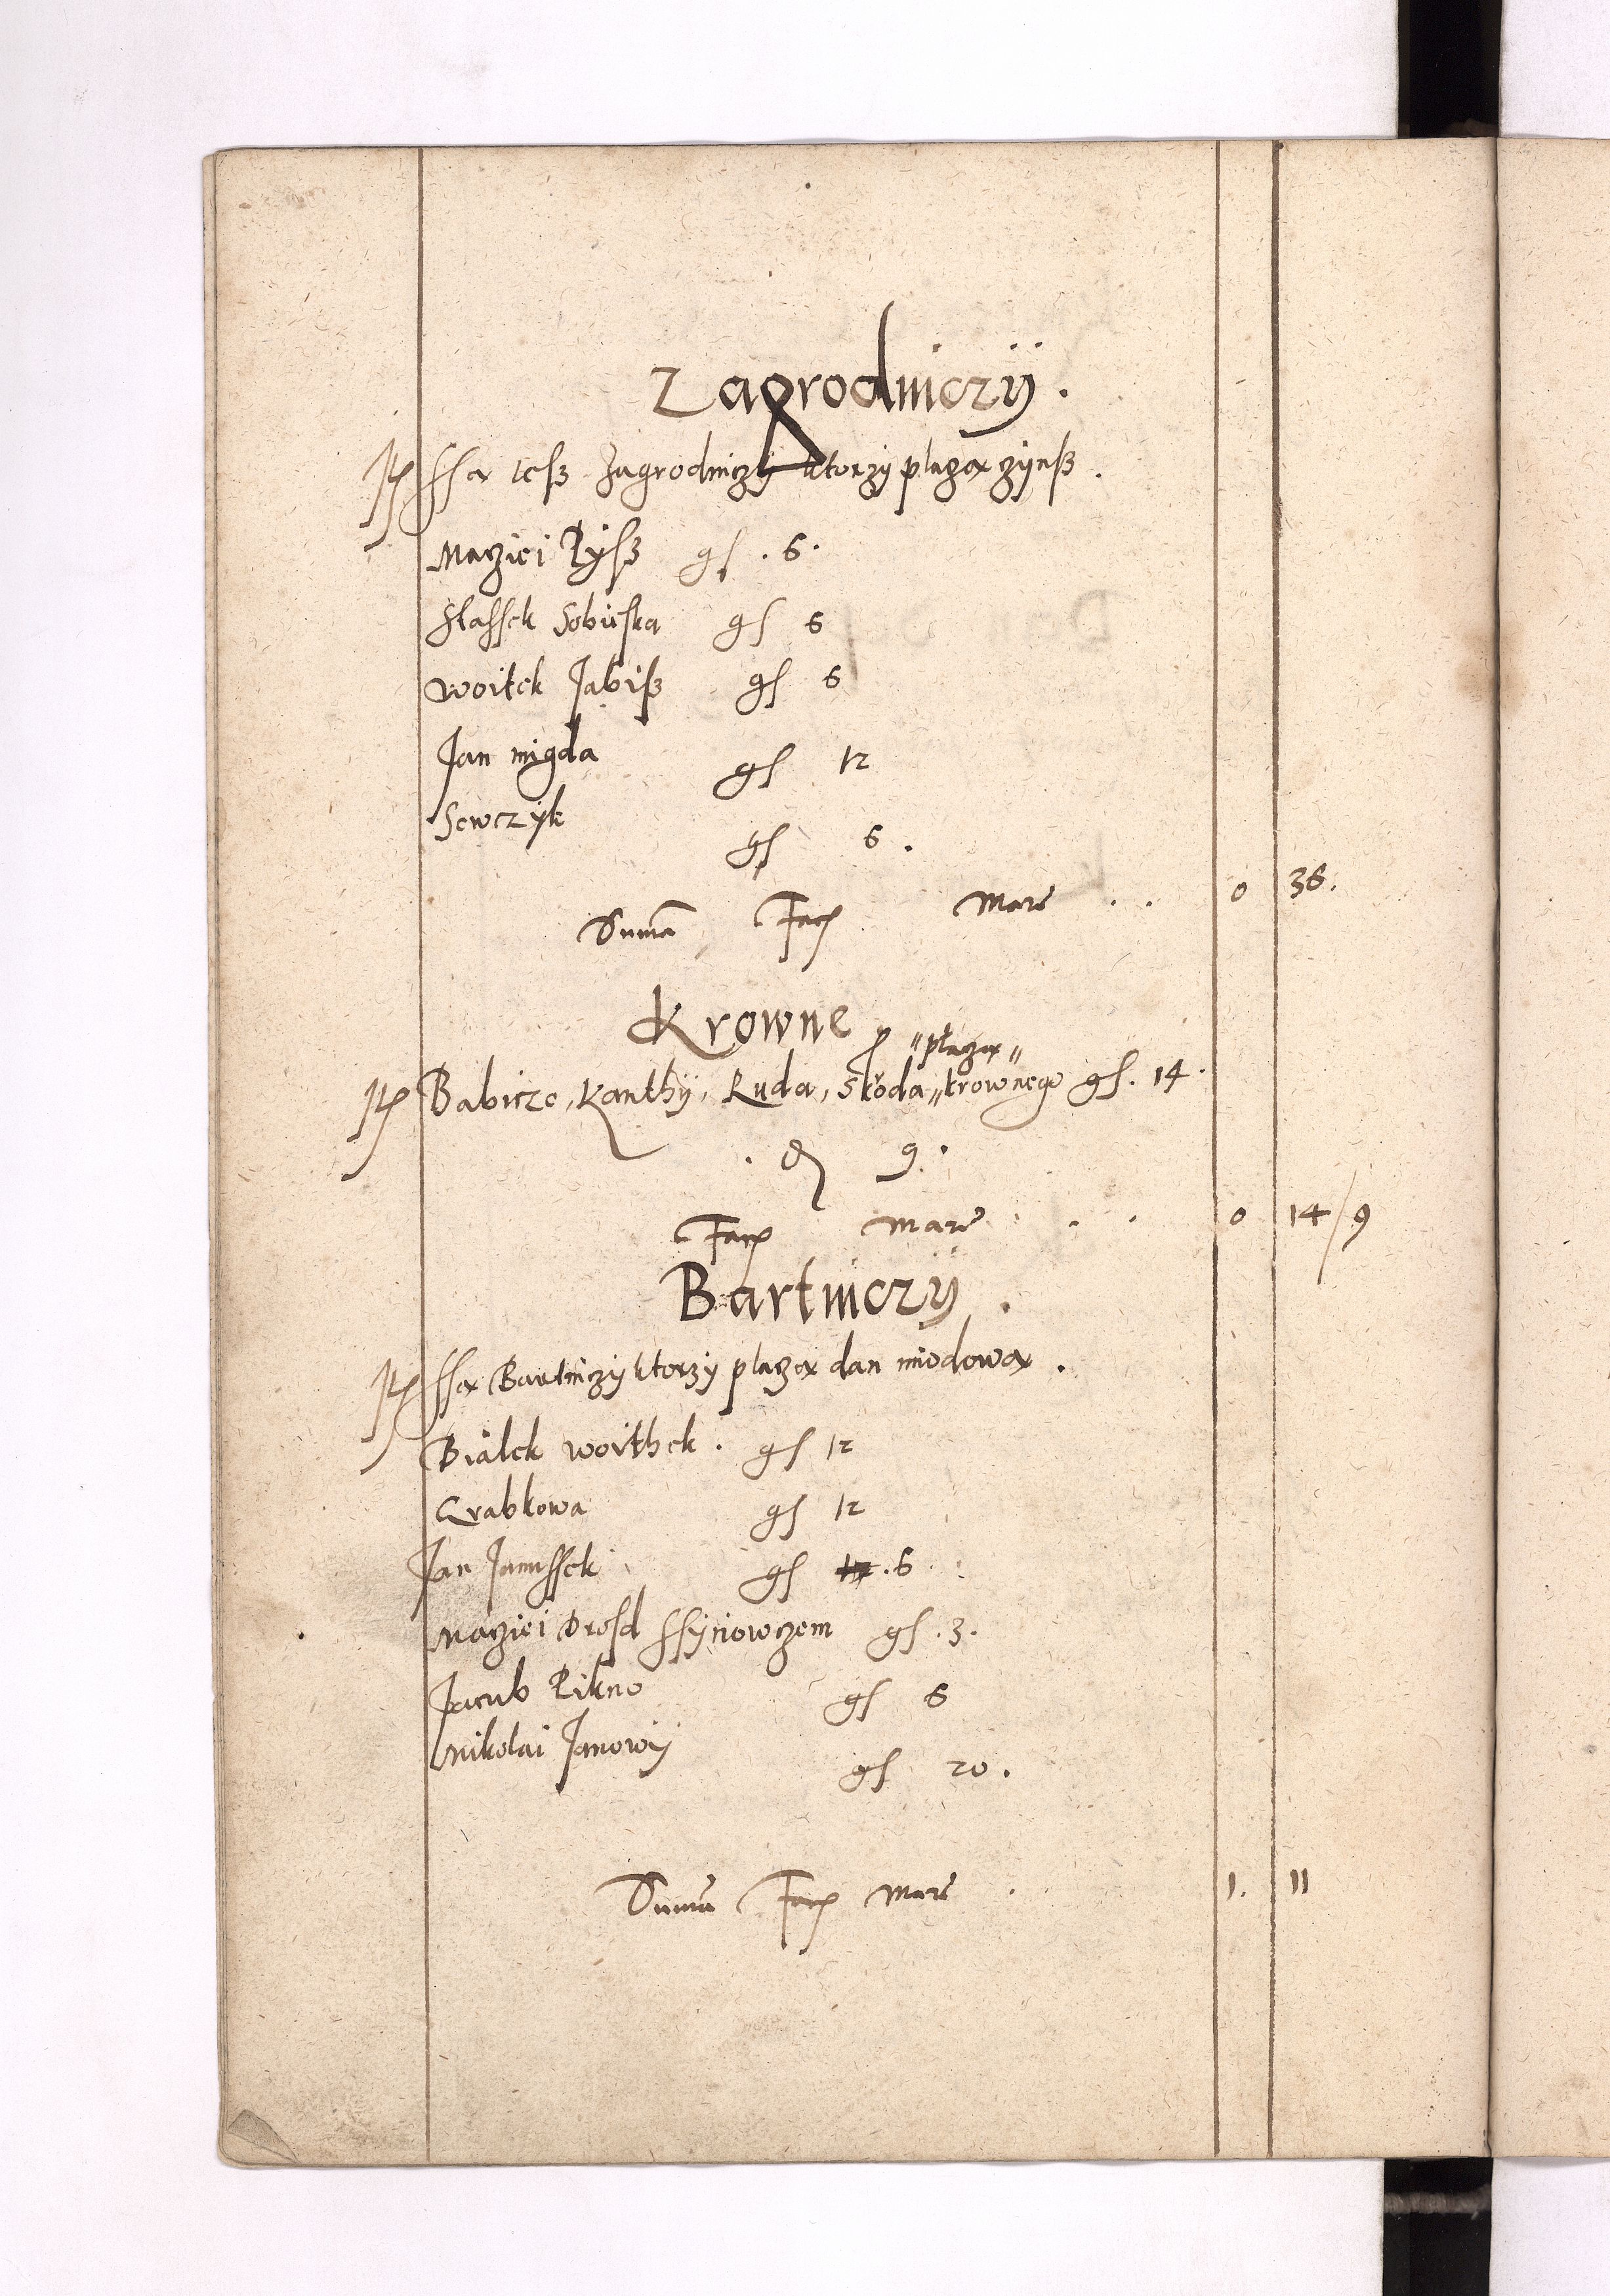 Zagrodniczÿ.
Jt ssą tesz Zagrodniczÿ ktorzy płaczą czÿnsz.
Macziei Rÿsz gs. 6.
Stassek Sobieska gs 6
Woitek Jabisz gs 6
Jan migda gs 12
Sewczÿk gs 6.
Suma Facit Marc . . 0 36.
Krowne
"płaczą"
Jt Babicze, Kanthÿ, Ruda, Skoda "krownego gs. 14.
. d 9.
Facit Marc . . 0 14/9
Bartniczÿ.
Jt ssą Bartniczy ktorzy płaczą dan miodową.
Białek woithek. gs 12
Grabkowa gs 12
Jan Janussek gs 12 .6.
Macziei Drosd ssynowczem gs .3.
Jacub Rikno gs 6
Mikolai Janowy gs 20.
Suma Facit Marc . 1. 11